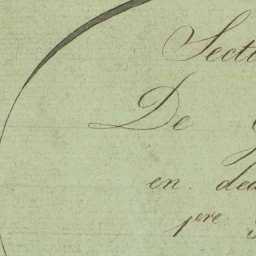 Secti
De
en ded
1ere